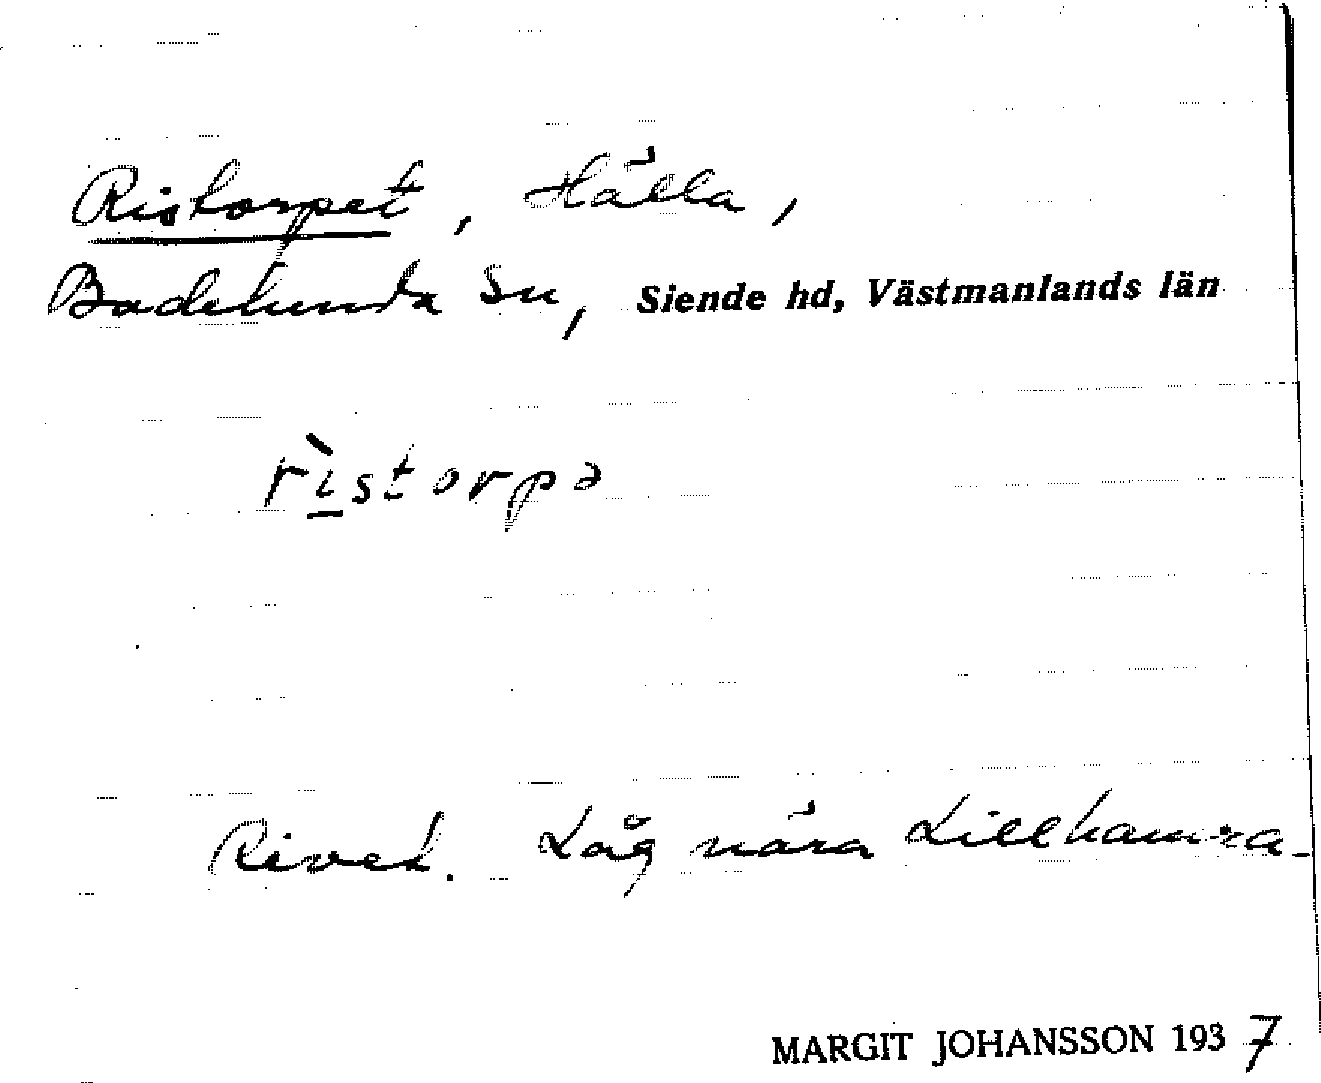 Ristorpet, Hälla,
Badelunda sn, Siende hd, Västmanlands län
rìstorpə
Rivet. Låg nära Lillhamra.
MARGIT JOHANSSON 1937